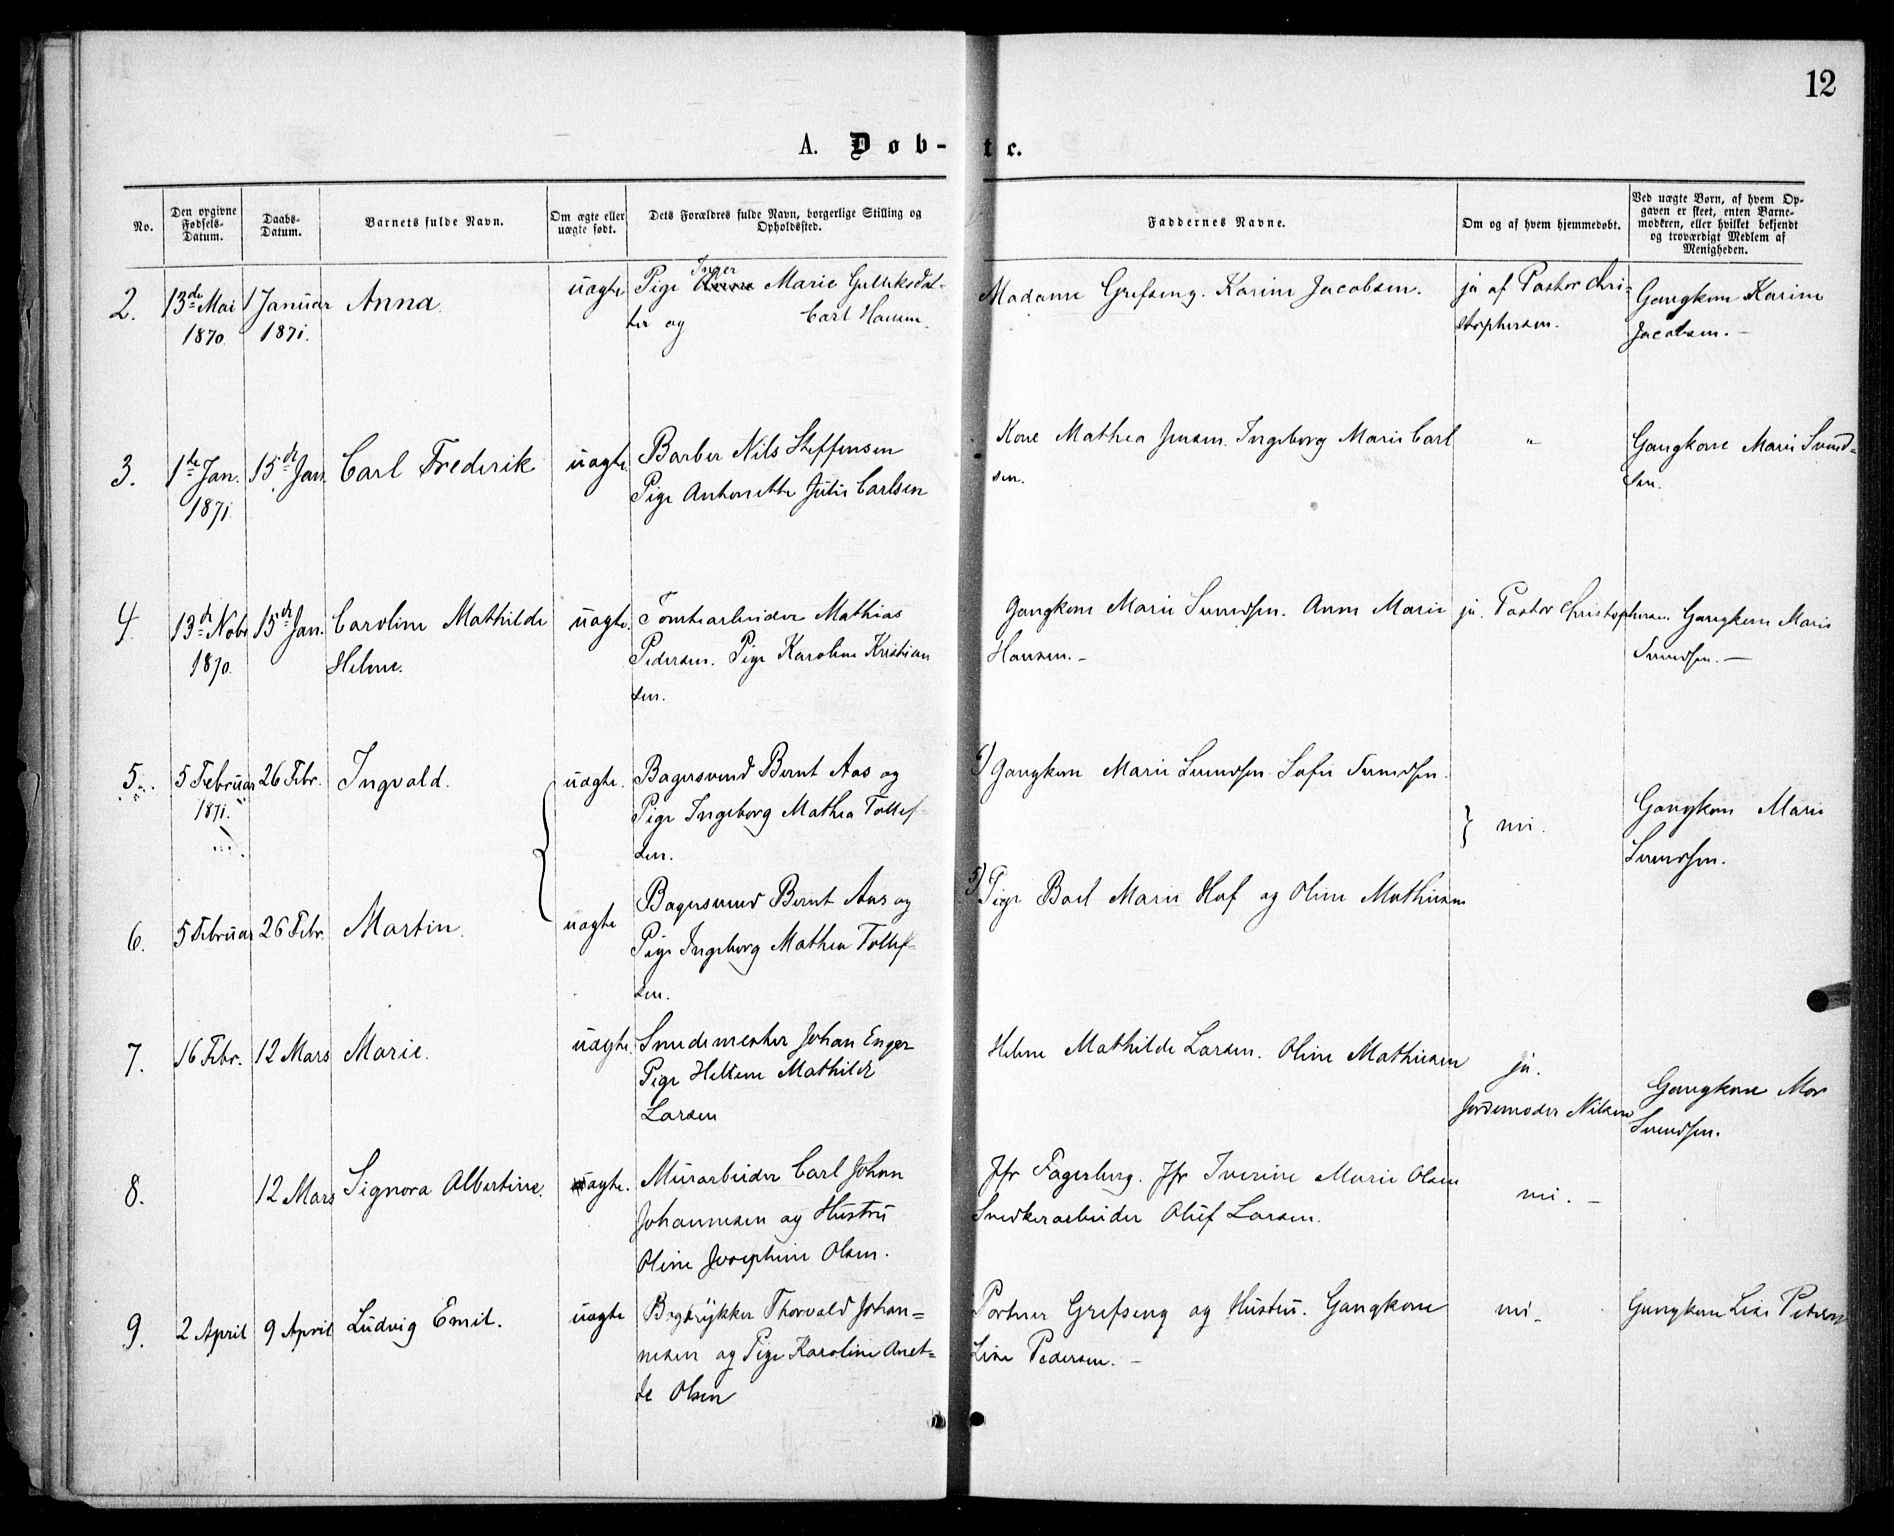 12
A. Døb-te.
No.
Den opgivne Fødsels-Datum.
Daabs-Datum.
Barnets fulde Navn.
Om ægte eller uægte født.
Dets Forældres fulde Navn, borgerlige Stilling og Opholdssted.
Faddernes Navne.
Om og af hvem hjemmedøbt.
Ved uægte Børn, af hvem Opgaven er skeet, enten Barnemoderen, eller hvilket bekjendt og troværdigt Medlem af Menigheden.
2. 13de Mai 1 Januar Anna. uægte Pige Inger Marie Gulliksdat-
1870. 1871. ter og Carl Hansen.
Madame Grefseng. Karine Jacobsen. ja af Pastor Chri-
stophersen.
Gangkone Karine
Jacobsen. -
3. 1te Jan. 15de Jan. Carl Frederik uægte. Barber Nils Steffensen
1871. Pige Antonette Julie Carlsen
Kone Mathea Jensen. Ingeborg Marie Carl
sen.
"
Gangkone Marie Svend-
sen.
4. 13de Nobr 15de Jan. Caroline Mathilde uægte. Tomtearbeider Mathias
1870. Helene. Pedersen. Pige Karoline Kristian
sen.
Gangkone Marie Svendsen. Anne Marie ja. Pastor Christophersen. Gangkone Marie
Hansen. - Svendsen. -
5. 5 Februar 26 Febr. Ingvald. uægte. Bagersvend Bernt Aas og
1871. Pige Ingeborg Mathea Tollef-
sen.
6) Gangkone Marie Svendsen. Sofie Svendsen.
} nei.
Gangkone Marie
Svendsen.
6. 5 Februar 26 Febr. Martin. uægte Bagersvend Bernt Aas og
Pige Ingeborg Mathea Tollef-
sen.
5) Pige Boel Marie Hof og Oline Mathiesen
7. 16 Febr. 12 Mars Marie. uægte. Smedemester Johan Enger
Pige Helene Mathilde
Larsen
Helene Mathilde Larsen. Oline Mathiesen
ja.
Jordemoder Nilsen
Gangkone Mar
Svendsen.
8. 12 Mars Signora Albertine. ægte. Murarbeider Carl Johan
Johannesen og Hustru
Oline Josephine Olsen.
Jfr Fagerberg. Jfr Iverine Marie Olsen
Snedkerarbeider Oluf Larsen.
nei. -
9. 2 April 9 April Ludvig Emil. uægte Bogtrykker Thorvald Johan-
nesen og Pige Karoline Anet-
te Olsen
Portner Grefseng og Hustru. Gangkone
Line Pedersen. -
nei.
Gangkone Line Petersen